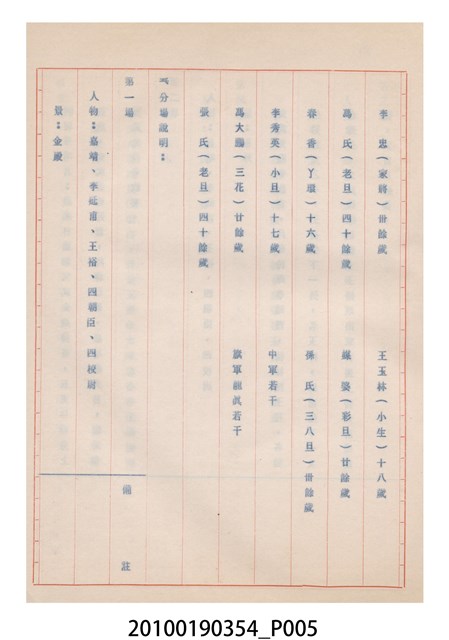 李　忠(家將)卅餘歲　王玉林(小生)十八歲
馮　氏(老旦)四十餘歲　媒　婆(彩旦)廿餘歲
春　香(丫環)十六歲　孫　氏(三八旦)卅餘歲
李秀英(小旦)十七歲　中軍若干
馮大(三花)廿餘歲　旗軍若干
張　氏(老旦)四十餘歲
分場說明：
第一場　備　註
人物：嘉靖、李廷甫、王裕、四朝臣、四校尉
景：金殿
20100190354_P005